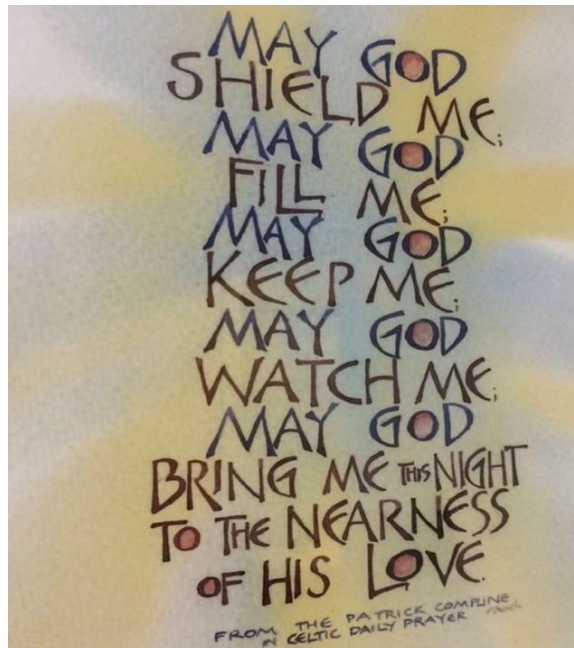 MAY GOD
SHIELD ME;
MAY GOD
FILL ME;
MAY GOD
KEEP ME;
MAY GOD
WATCH ME;
MAY GOD
BRING ME THIS NIGHT
TO THE NEARNESS
OF HIS LOVE.
FROM THE PATRICK COMPLINE
IN CELTIC DAILY PRAYER